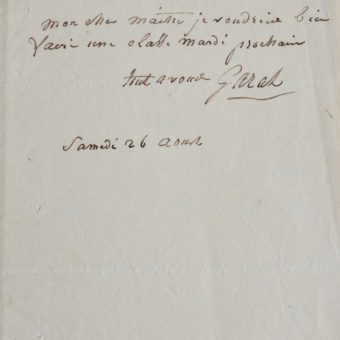 mon cher maitre je voudrois bien
savoir une classe mardi prochain
tout a vous Garat
Samedi 26 Aoust